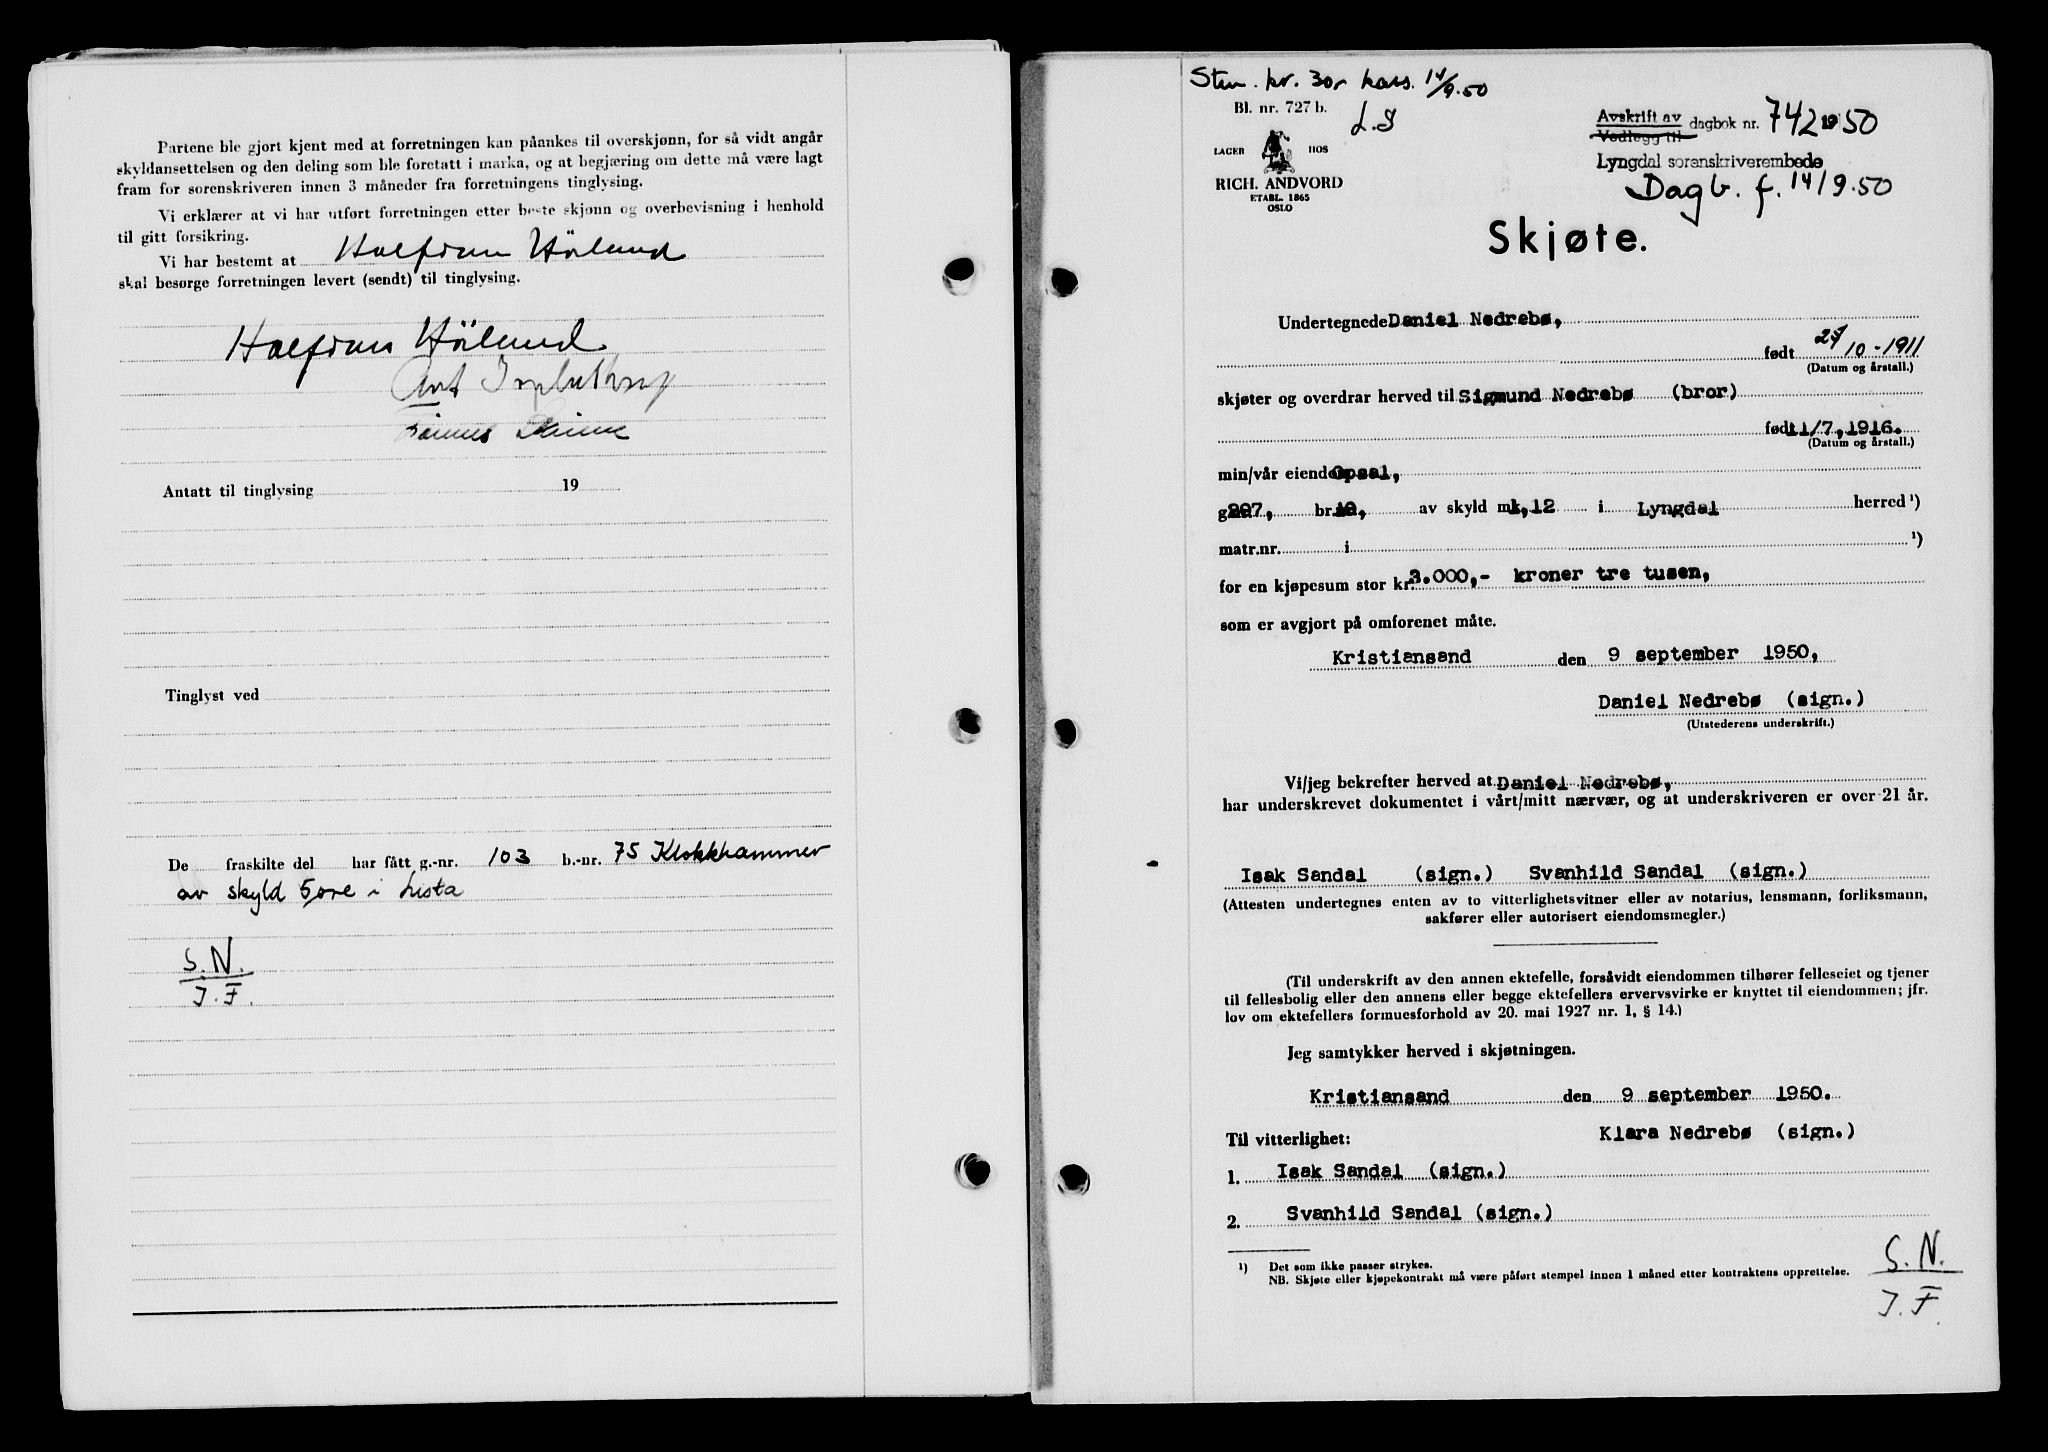 Partene ble gjort kjent med at forretningen kan påankes til overskjønn, for så vidt angår
skyldansettelsen og den deling som ble foretatt i marka, og at begjæring om dette må være lagt
fram for sorenskriveren innen 3 måneder fra forretningens tinglysing.
Vi erklærer at vi har utført forretningen etter beste skjønn og overbevisning i henhold
til gitt forsikring.
Vi har bestemt at Halfdan Hörlund
skal besørge forretningen levert (sendt) til tinglysing.
Halfdan Hörlund
Antatt til tinglysing 19
Tinglyst ved
De fraskilte del har fått g.-nr. 103 b.-nr. 75 Klokkhammer
av skyld 5 øre i Lista
S.N.
J.F.
Sten. kr. 30,- kass. 14/9.50
Bl. nr. 727 b.
L.S
LAGER HOS
RICH. ANDVORD
ETABL. 1865
OSLO
Avskrift av
Vedlegg til dagbok nr. 742 1950
Lyngdal sorenskriverembede
Dagb. f. 14/9.50
Skjøte.
Undertegnede Daniel Nedrebø,
født 10-1911
(Datum og årstall.)
skjøter og overdrar herved til Sigmund Nedrebø (bror)
født 11/7,1916.
(Datum og årstall.)
min/vår eiendom Opsal,
g.nr. 207, br.nr. 10, av skyld mk. 1,12 i Lyngdal herred ¹)
matr.nr. i ¹)
for en kjøpesum stor kr. 3.000,- kroner tre tusen,
som er avgjort på omforenet måte.
Kristiansand den 9 september 1950,
Daniel Nedrebø (sign.)
(Utstederens underskrift.)
Vi/jeg bekrefter herved at Daniel Nedrebø,
har underskrevet dokumentet i vårt/mitt nærvær, og at underskriveren er over 21 år.
Isak Sandal (sign.) Svanhild Sandal (sign.)
(Attesten undertegnes enten av to vitterlighetsvitner eller av notarius, lensmann, forliksmann,
sakfører eller autorisert eiendomsmegler.)
(Til underskrift av den annen ektefelle, forsåvidt eiendommen tilhører felleseiet og tjener
til fellesbolig eller den annens eller begge ektefellers ervervsvirke er knyttet til eiendommen; jfr.
lov om ektefellers formuesforhold av 20. mai 1927 nr. 1, § 14.)
Jeg samtykker herved i skjøtningen.
Kristiansand den 9 september 1950.
Til vitterlighet: Klara Nedrebø (sign.)
1. Isak Sandal (sign.)
2. Svanhild Sandal (sign.)
¹) Det som ikke passer strykes.
NB. Skjøte eller kjøpekontrakt må være påført stempel innen 1 måned etter kontraktens opprettelse.
S.N.
J.F.